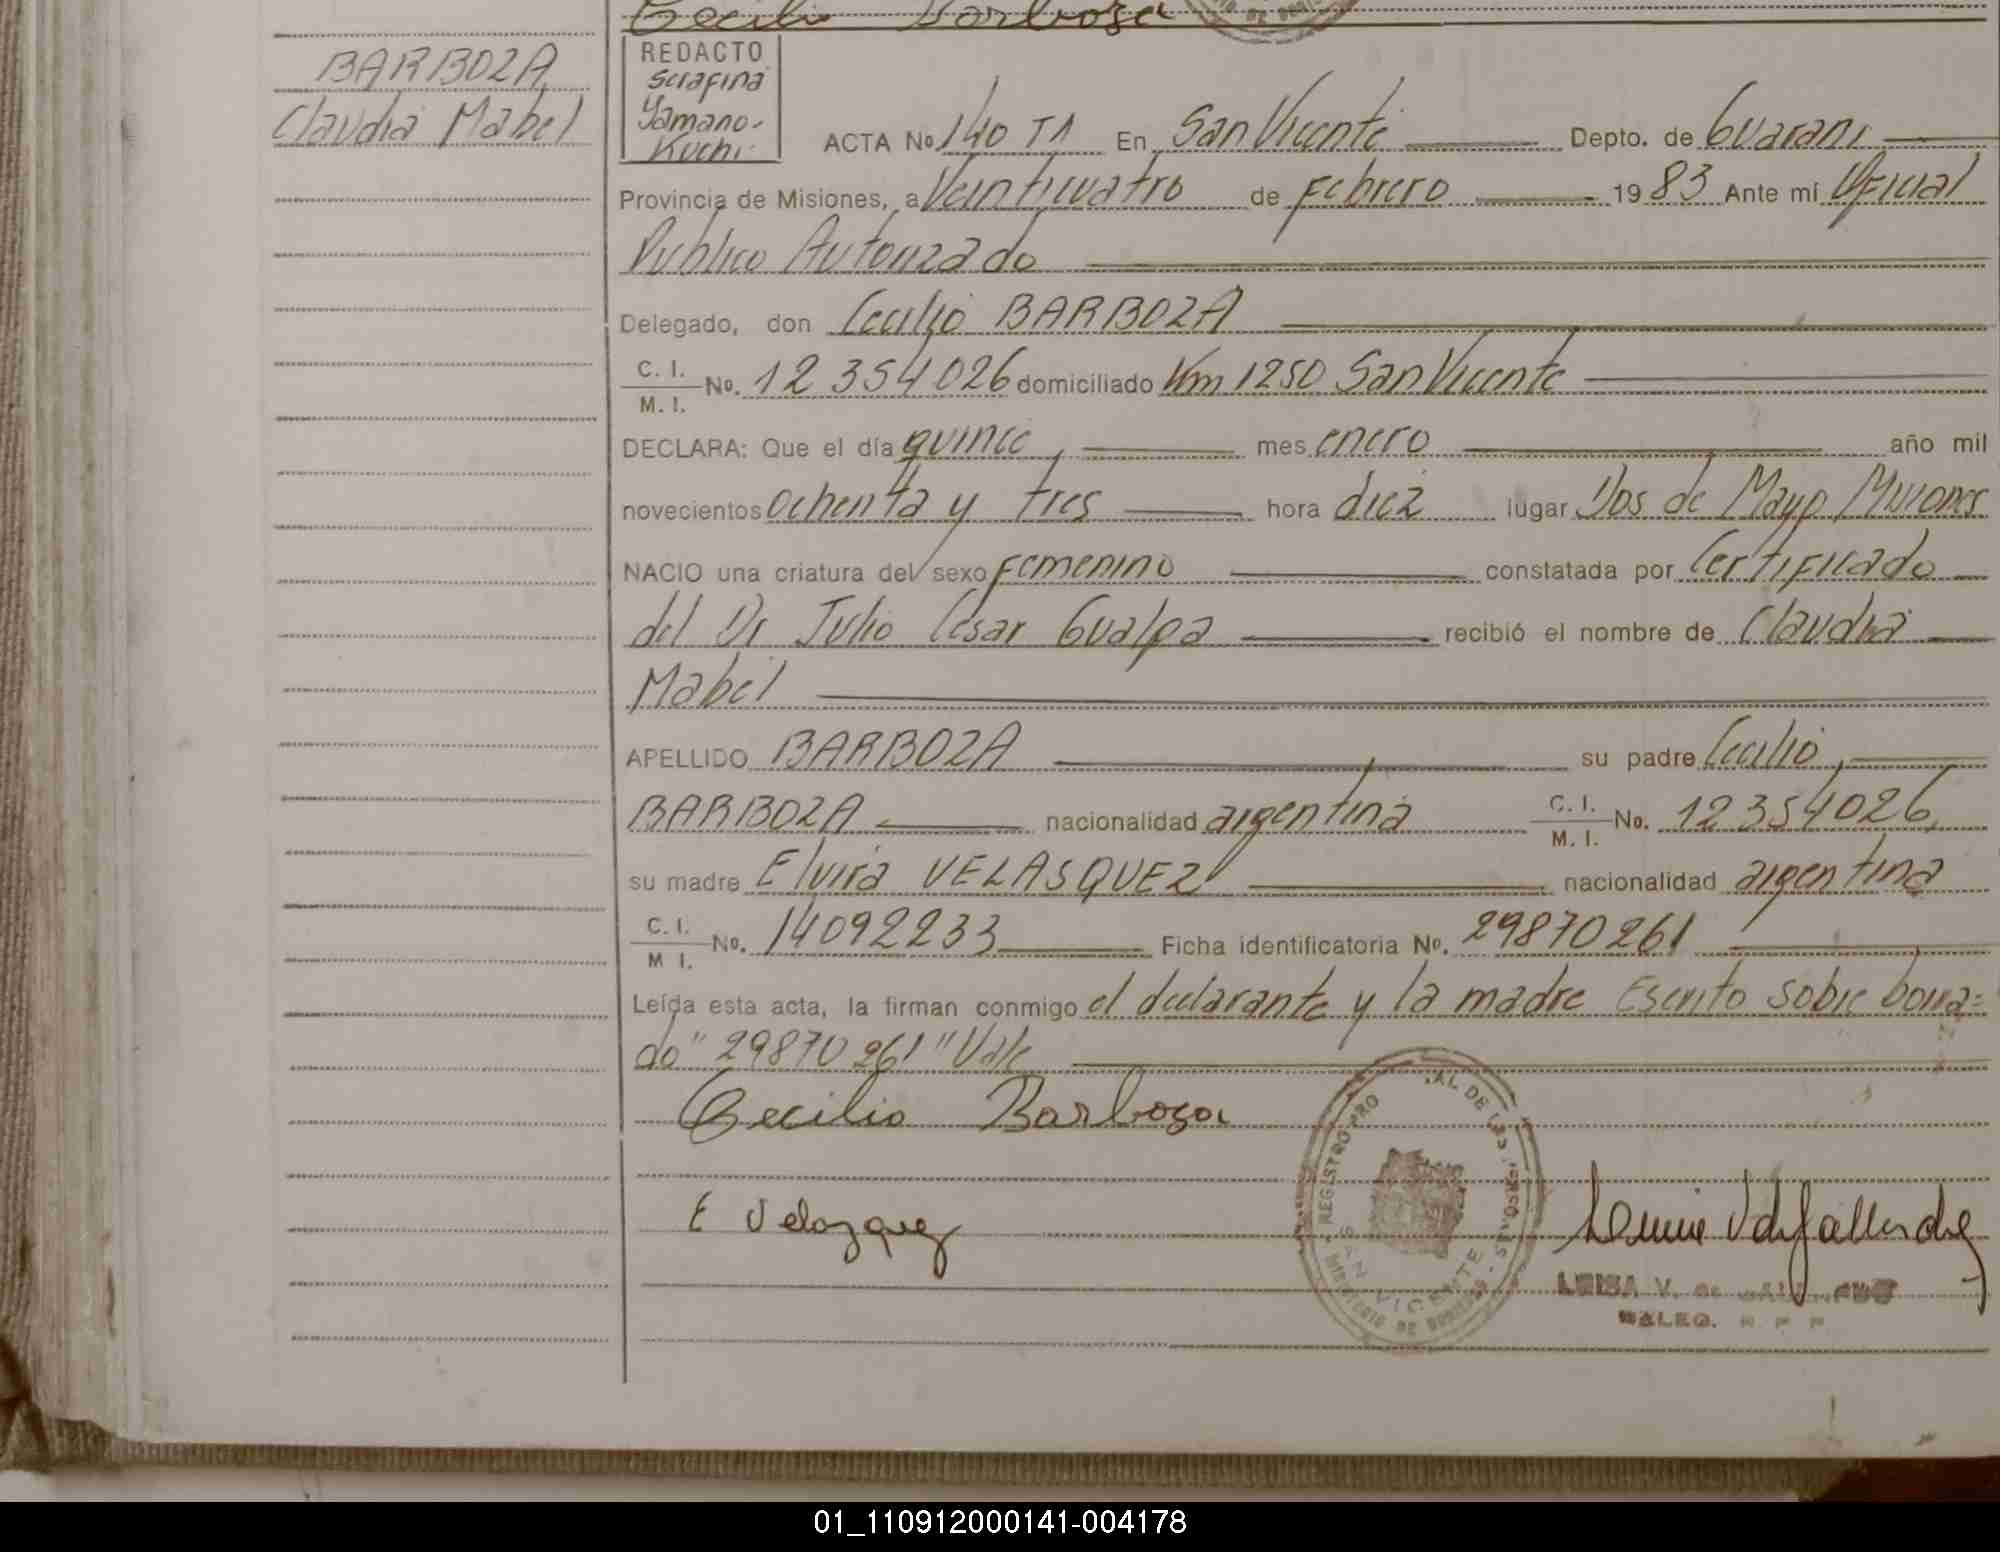 Cecilio Barboza
BARBOZA
Claudia Mabel
REDACTO
Serafina
Yamano-
Kuchi
ACTA No 140 T1 En San Vicente Depto. de Guarani
Provincia de Misiones, a Veinticuatro de Febrero 19 83 Ante mí Oficial
Publico Autorizado
Delegado, don Cecilio BARBOZA
C. I. / M. I. No. 12 354 026 domiciliado Km 1250 San Vicente
DECLARA: Que el día quince mes enero año mil
novecientos ochenta y tres hora diez lugar Dos de Mayo Misiones
NACIO una criatura del sexo Femenino constatada por Certificado
del Dr Julio Cesar Gualpa recibió el nombre de Claudia
Mabel
APELLIDO BARBOZA su padre Cecilio
BARBOZA nacionalidad argentina C. I. / M. I. No. 12 354 026
su madre Elvira VELASQUEZ nacionalidad argentina
C. I. / M I. No. 14092233 Ficha identificatoria No. 29870261
Leída esta acta, la firman conmigo el declarante y la madre Escrito sobre borra=
do "29870 261" Vale
Cecilio Barboza
E Velazquez
REGISTRO PRO AL DE LAS PERSONAS
SAN VICENTE
LUISA V. DE
01_110912000141-004178